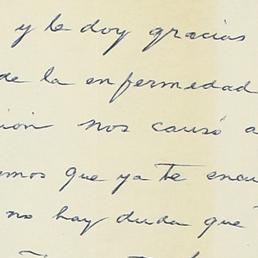 y le doy gracias
de la enfermedad
ion nos causó a
mos que ya te encu
no hay duda que